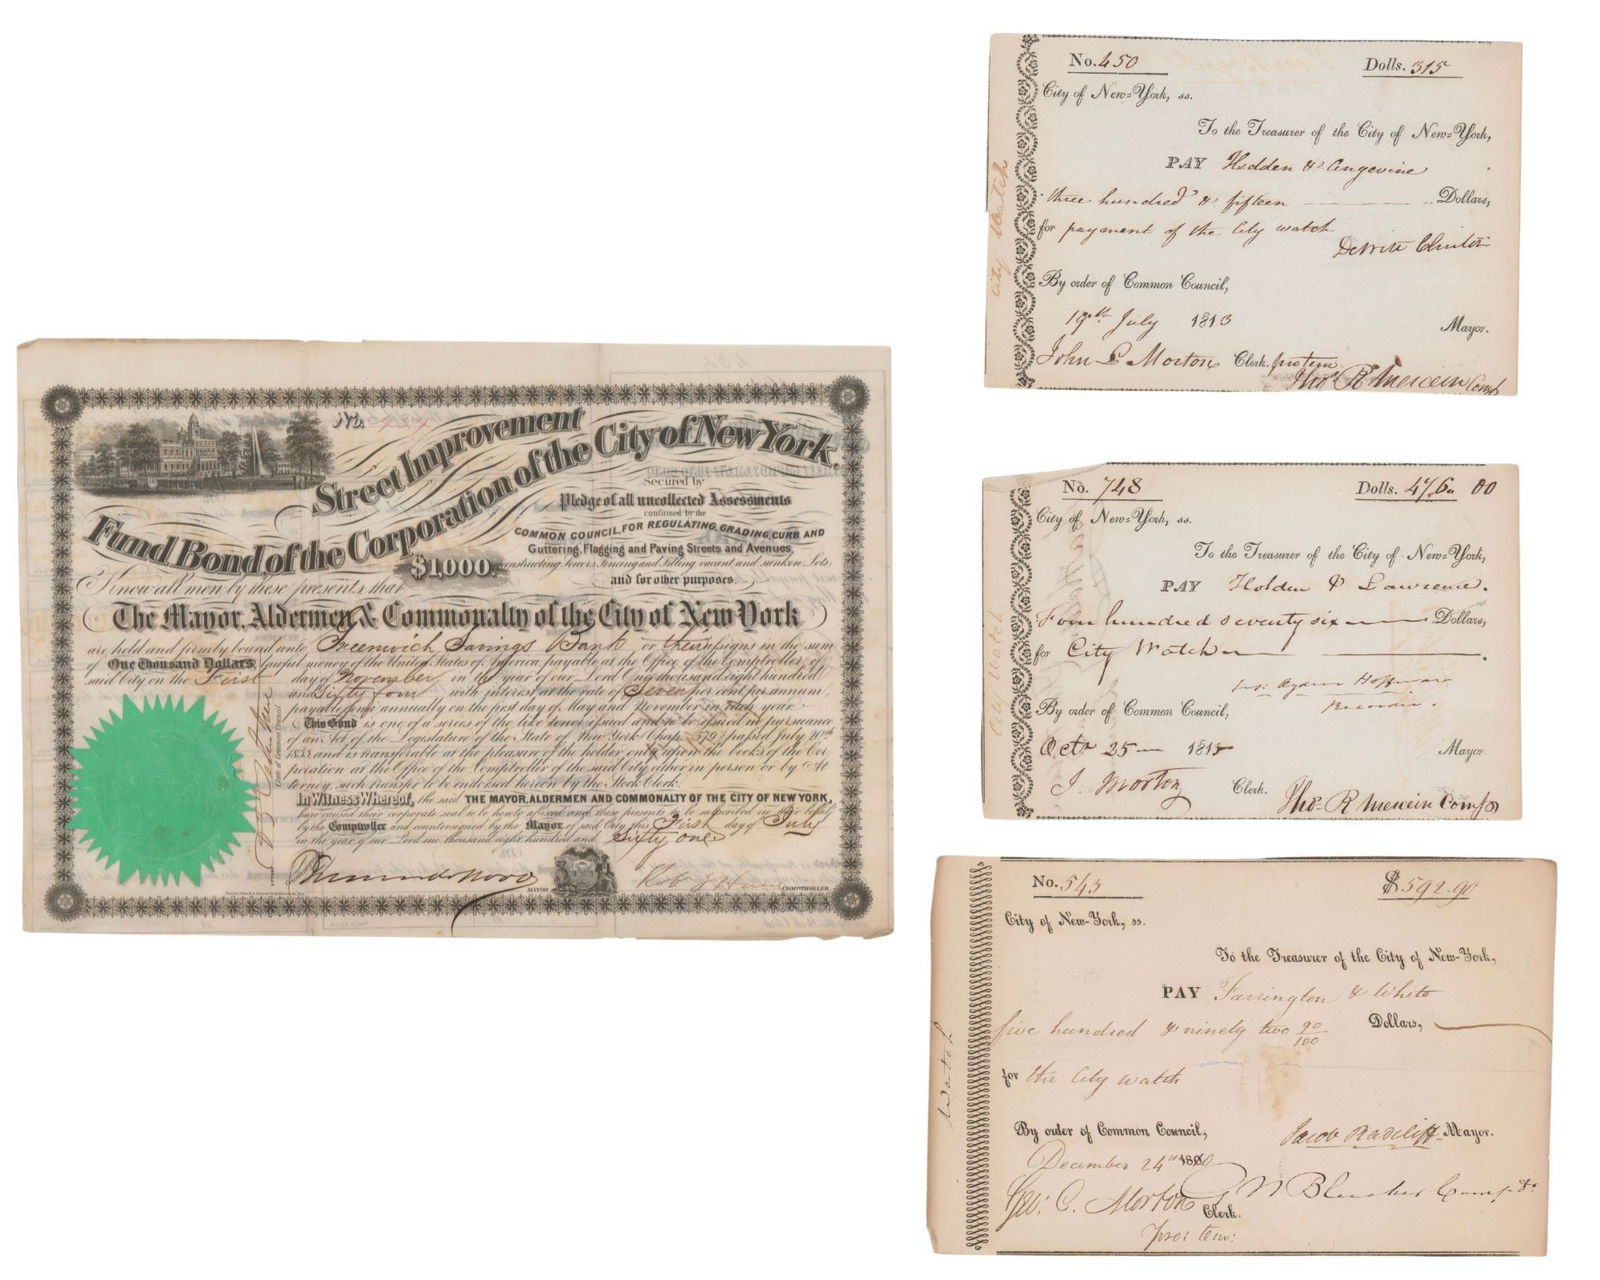 No.
Street Improvement
Fund Bond of the Corporation of the City of New York
Secured by
Pledge of all uncollected Assessments
confirmed by the
COMMON COUNCIL, FOR REGULATING, GRADING, CURB AND
Guttering, Flagging and Paving Streets and Avenues,
constructing Sewers Fencing and Filling vacant and sunken Lots,
$1,000. and for other purposes.
Know all men by these presents that
The Mayor, Aldermen & Commonalty of the City of New York
are held and firmly bound unto Greenwich Savings Bank or their assigns in the sum
of One Thousand Dollars lawful money of the United States of America payable at the Office of the Comptroller of
said City on the First day of November in the year of our Lord One thousand eight hundred
and Sixty four with interest at the rate of Seven per cent per annum,
payable semi annually on the first day of May and November in each year
This Bond is one of a series of the like tenor issued and to be issued in pursuance
of an Act of the Legislature of the State of New York Chap. 579 passed July 20th
1853 and is transferable at the pleasure of the holder only upon the books of the Cor
poration at the Office of the Comptroller of the said City either in person or by At
torney, such transfer to be endorsed hereon by the Stock Clerk.
In Witness Whereof, the said THE MAYOR, ALDERMEN AND COMMONALTY OF THE CITY OF NEW YORK,
have caused their corporate seal to be hereto affixed and these presents to be subscribed in their behalf
by the Comptroller and countersigned by the Mayor of said City this First day of July
in the year of our Lord one thousand eight hundred and Sixty one
Clerk of Common Council
Fernando Wood MAYOR COMPTROLLER
No. 450 Dolls. 315
City of New=York, ss.
To the Treasurer of the City of New=York,
PAY Hedden & Angevine
three hundred & fifteen Dollars,
for payment of the City watch
DeWitt Clinton
By order of Common Council,
19th July 1813 Mayor.
John L Morton Clerk. protem
Thos R Mercein Comp
City Watch
No. 748 Dolls. 476. 00
City of New=York, ss.
To the Treasurer of the City of New=York,
PAY Holden & Lawrence.
Four hundred seventy six Dollars,
for City Watch
Jos: Ogden Hoffman
Recorder.
By order of Common Council,
Octr 25 1815 Mayor
J. Morton Clerk.
Thos R Mercein Comp
City Watch
No. 543 $592.90
City of New-York, ss.
To the Treasurer of the City of New-York,
PAY Farrington & White
five hundred & ninety two 90/100 Dollars,
for the City watch
By order of Common Council, Jacob Radcliff Mayor.
December 24th 1810
Geo: C. Morton Clerk. N Bleecker Comp
Pro: tem:
Watch